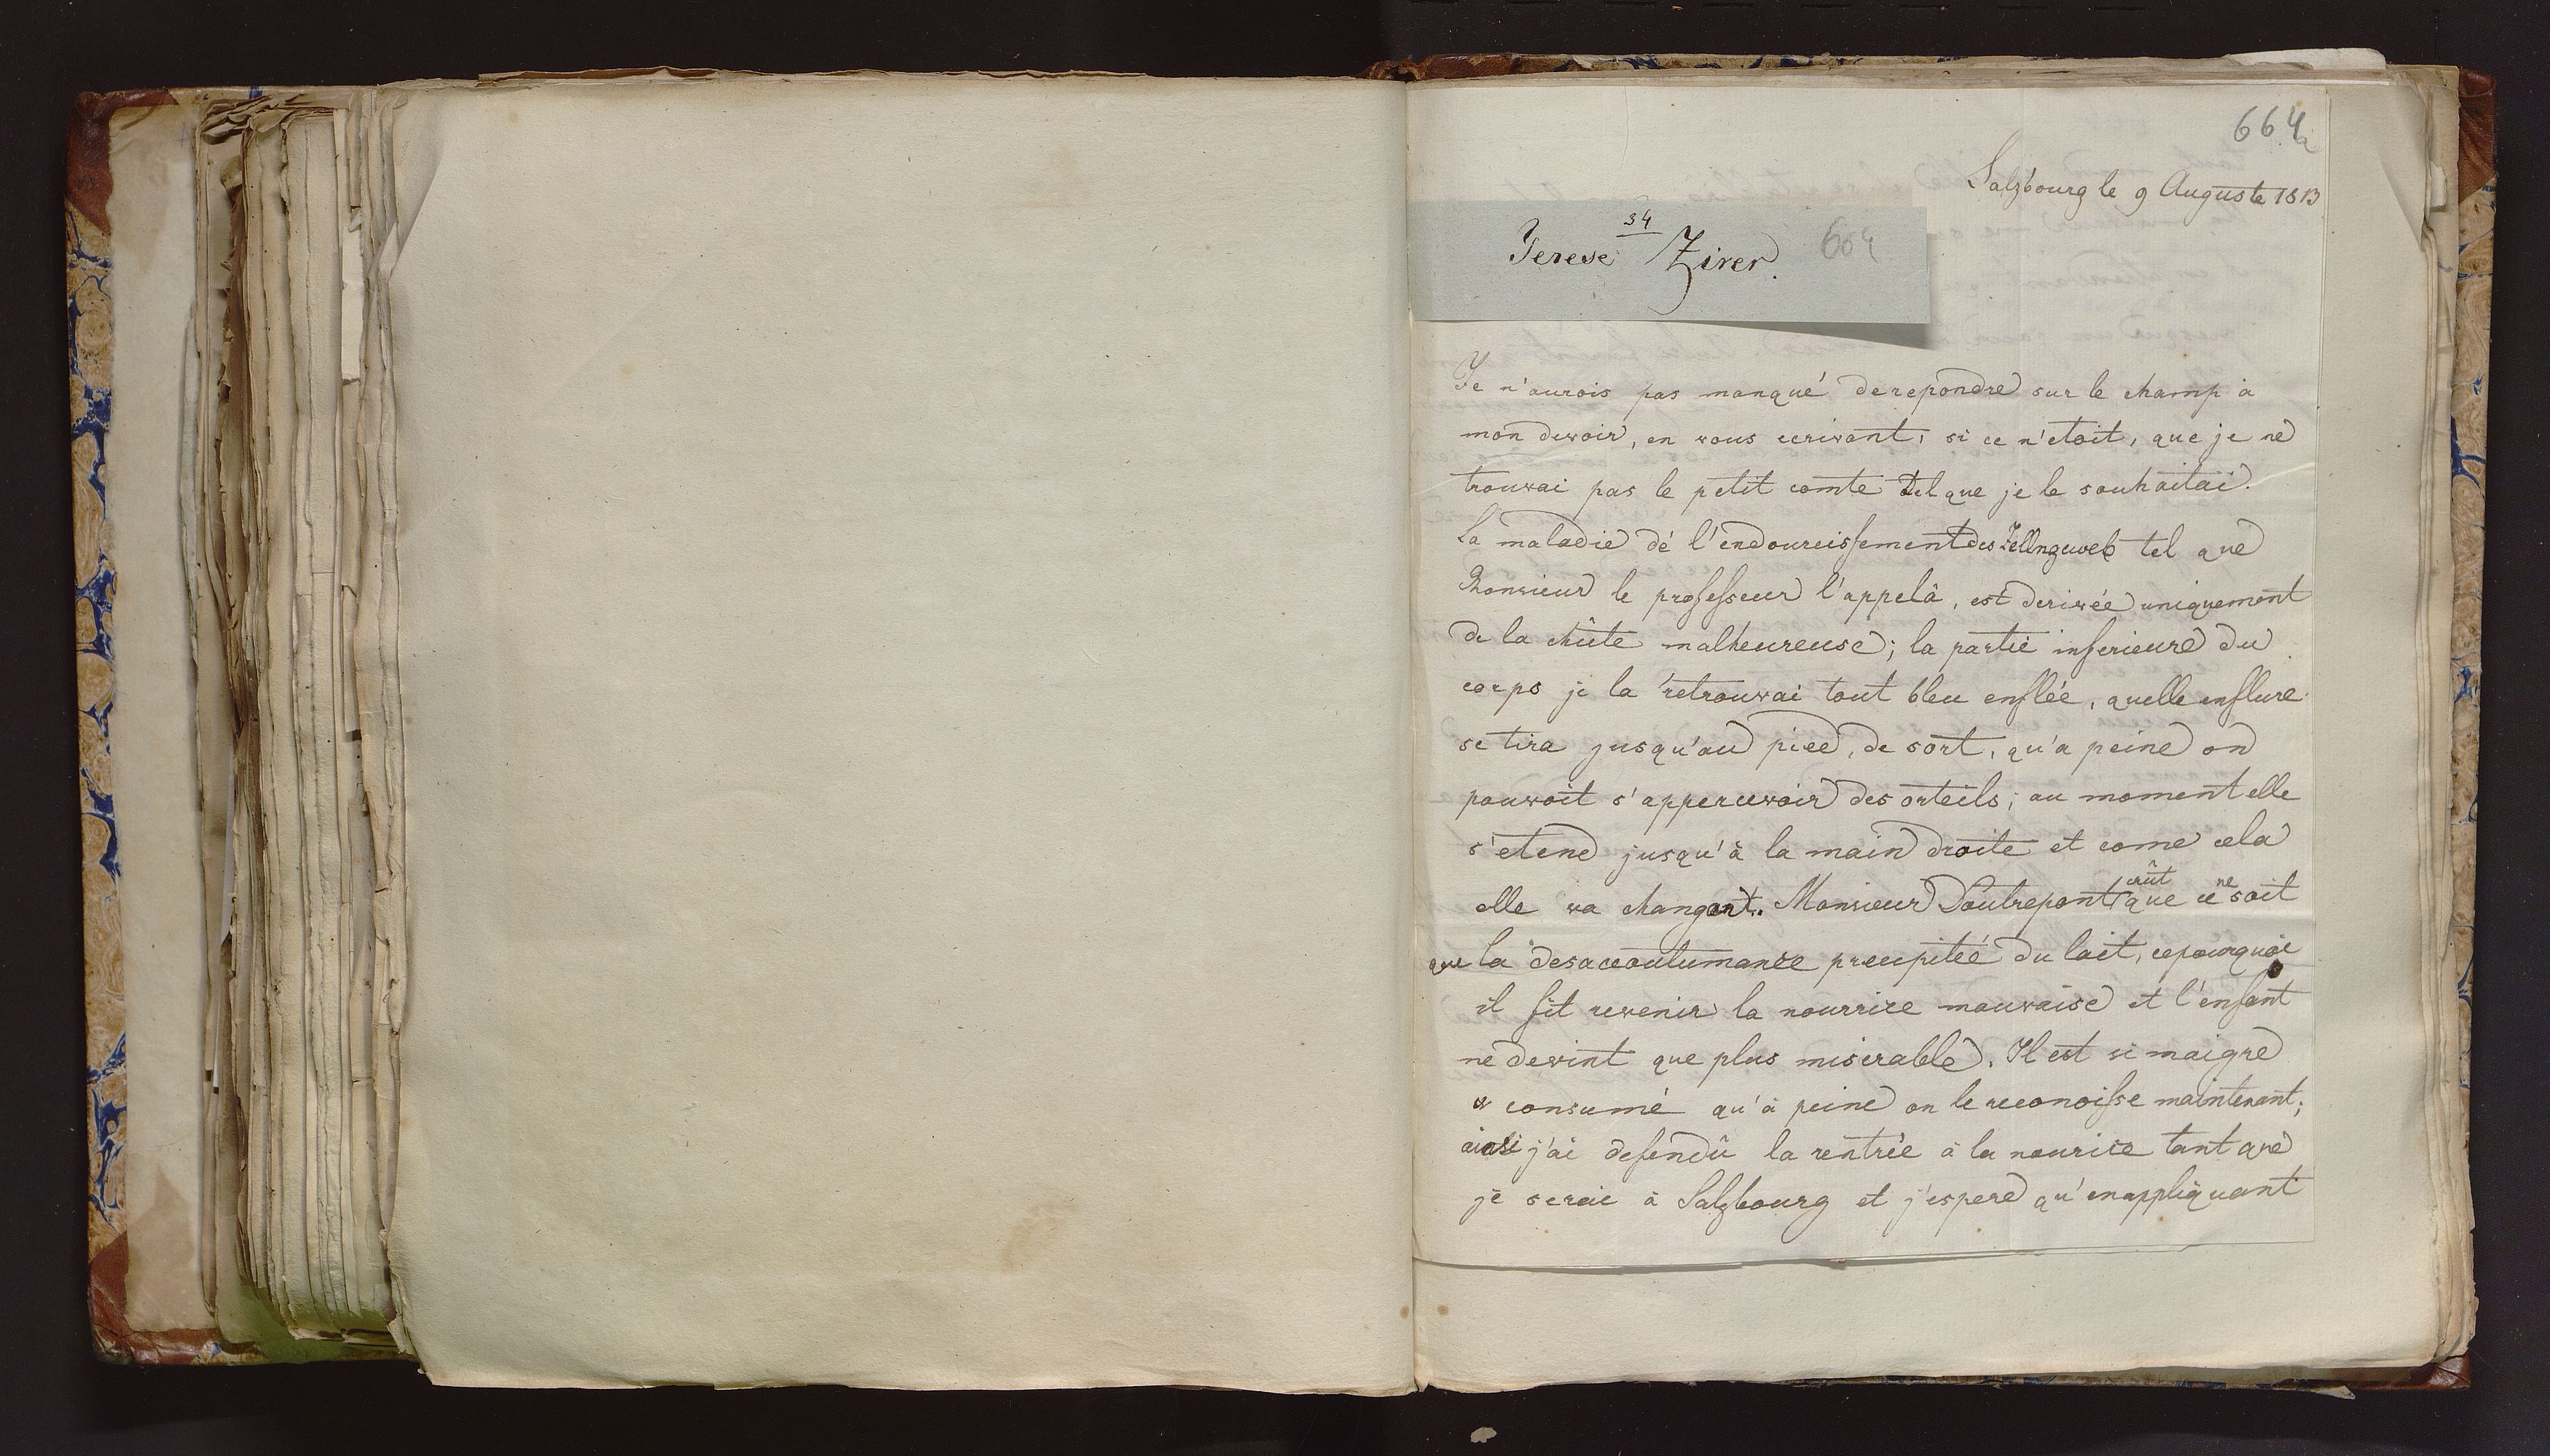 664a
Salzbourg le 9 Auguste 1813
34
Terese Zirer. 664
Je n'aurois pas manqué de repondre sur le champ à
mon devoir, en vous ecrivant, si ce n'etoit, que je ne
trouvai pas le petit comte tel que je le souhaitai.
La maladie de l'endourcissement des Zellngeweb tel que
Monsieur le professeur l'appelà, est derivée uniquement
de la chûte malheureuse; la partie inferieure du
corps je la retrouvai tout bleu enflée, quelle enflure
se tira jusqu'au pied, de sort, qu'a peine on
pouvoit s'appercevoir des orteils; au moment elle
s'etend jusqu'à la main droite et come cela
elle va changent. Monsieur Doutrepont crût que ce ne soit
que la desaccoutumance precipiteé du lait, cepourquoi
il fit revenir la nourrice mauvaise et l'enfant
ne devint que plus miserable. Il est si maigre
et consumé qu'à peine on le reconoisse maintenant;
ainsi j'ai defendû la rentrée à la nourice tant que
je serai à Salzbourg et j'espere qu'en appliquant